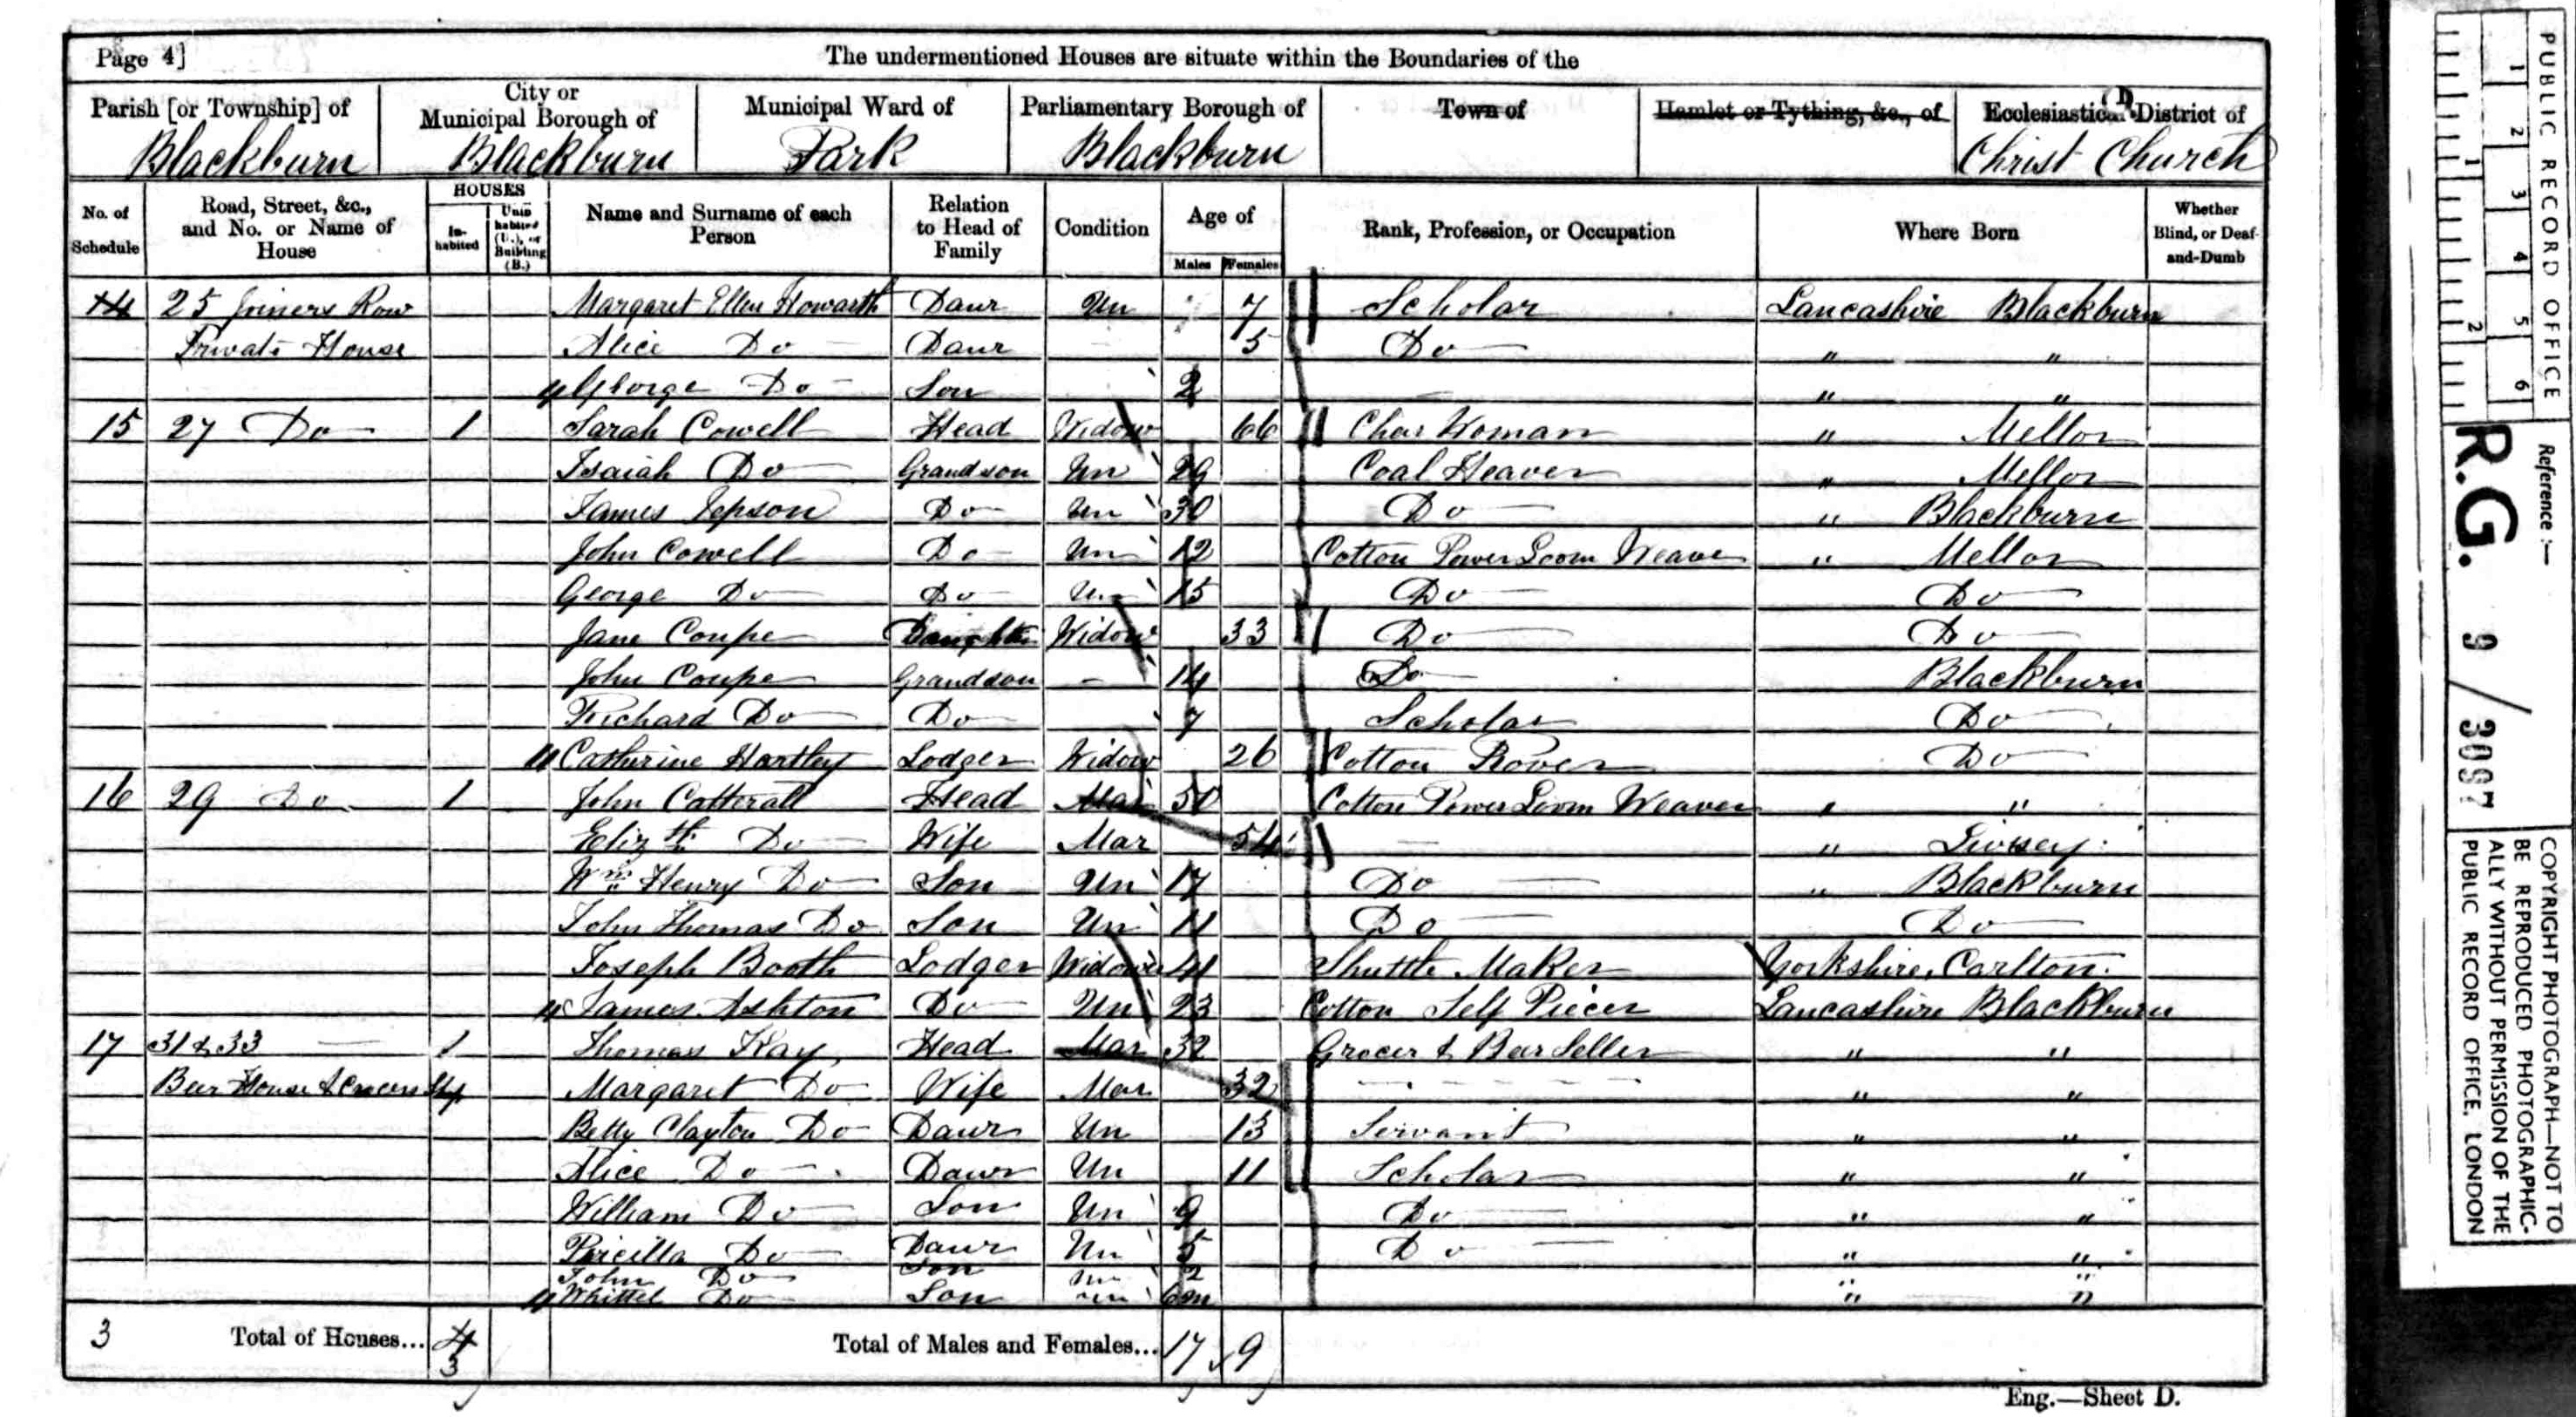 Page 4]
The undermentioned Houses are situate within the Boundaries of the
Parish [or Township] of Blackburn
City or Municipal Borough of Blackburn
Municipal Ward of Park
Parliamentary Borough of Blackburn
Town of
Hamlet or Tything, &c., of
Ecclesiastical District of Christ Church
No. of Schedule
Road, Street, &c., and No. or Name of House
HOUSES
In-habited
Unin habited (U.), or Building (B.)
Name and Surname of each Person
Relation to Head of Family
Condition
Age of
Males Females
Rank, Profession, or Occupation
Where Born
Whether Blind, or Deaf-and-Dumb
14 25 Joiners Row Margaret Ellen Howarth Daur Un 7 Scholar Lancashire Blackburn
Private House Alice Do Daur 5 Do " "
George Do Son 2 " "
15 27 Do 1 Sarah Cowell Head Widow 66 Char Woman " Mellor
Isaiah Do Grandson Un 29 Coal Heaver " Mellor
James Jepson Do Un 30 Do " Blackburn
John Cowell Do Un 12 Cotton Power Loom Weaver " Mellor
George Do Do Un 15 Do Do
Jane Coupe Daughter Widow 33 Do Do
John Coupe Grandson - 14 Do Blackburn
Richard Do Do 7 Scholar Do
Catherine Hartley Lodger Widow 26 Cotton Rover Do
16 29 Do 1 John Catterall Head Mar 50 Cotton Power Loom Weaver " "
Elizth Do Wife Mar 54 — " Livesey
Wm Henry Do Son Un 17 Do " Blackburn
John Thomas Do Son Un 11 Do Do
Joseph Booth Lodger Widower 41 Shuttle Maker Yorkshire, Carlton.
James Ashton Do Un 23 Cotton Self Piecer Lancashire Blackburn
17 31 & 33 1 Thomas Kay Head Mar 32 Grocer & Beer Seller " "
Beer House & Shop Margaret Do Wife Mar 32 " "
Betty Clayton Do Daur Un 13 Servant " "
Alice Do Daur Un 11 Scholar " "
William Do Son Un 9 Do " "
Pricilla Do Daur Un 5 Do " "
John Do Son Un 2 " "
Whittel Do Son Un 6m " "
3 Total of Houses... 4 3
Total of Males and Females... 17 9
Eng.—Sheet D.
PUBLIC RECORD OFFICE
1 2 3 4 5 6
1 2
Reference :—
R.G. 9 / 3097
COPYRIGHT PHOTOGRAPH—NOT TO
BE REPRODUCED PHOTOGRAPHIC-
ALLY WITHOUT PERMISSION OF THE
PUBLIC RECORD OFFICE, LONDON